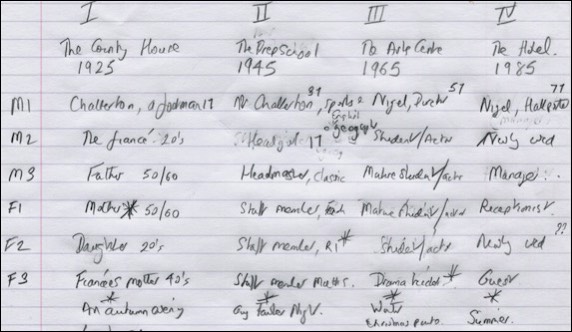 I II III IV
The County House The Prep School The Arts Centre The Hotel.
1925 1945 1965 1985
M1 Challerton, a footman 17 Mr Challerton, 37 sports & Nigel, Director 57 Nigel, Hall 77
M2 The fiancé 20's Head 17 Student/Actor Newly wed
M3 Father 50/60 Headmaster, classics Mature Student/actor Manager.
F1 Mother * 50/60 Staff member, Mature student/actor Receptionist.
F2 Daughter 20's Staff member, R1 * Student/actor Newly wed ??
F3 Fiancées mother 40's Staff member Maths. Drama * Guest
* * * *
An autumn evening Guy Fawkes Night. Winter Summer.
Christmas panto.